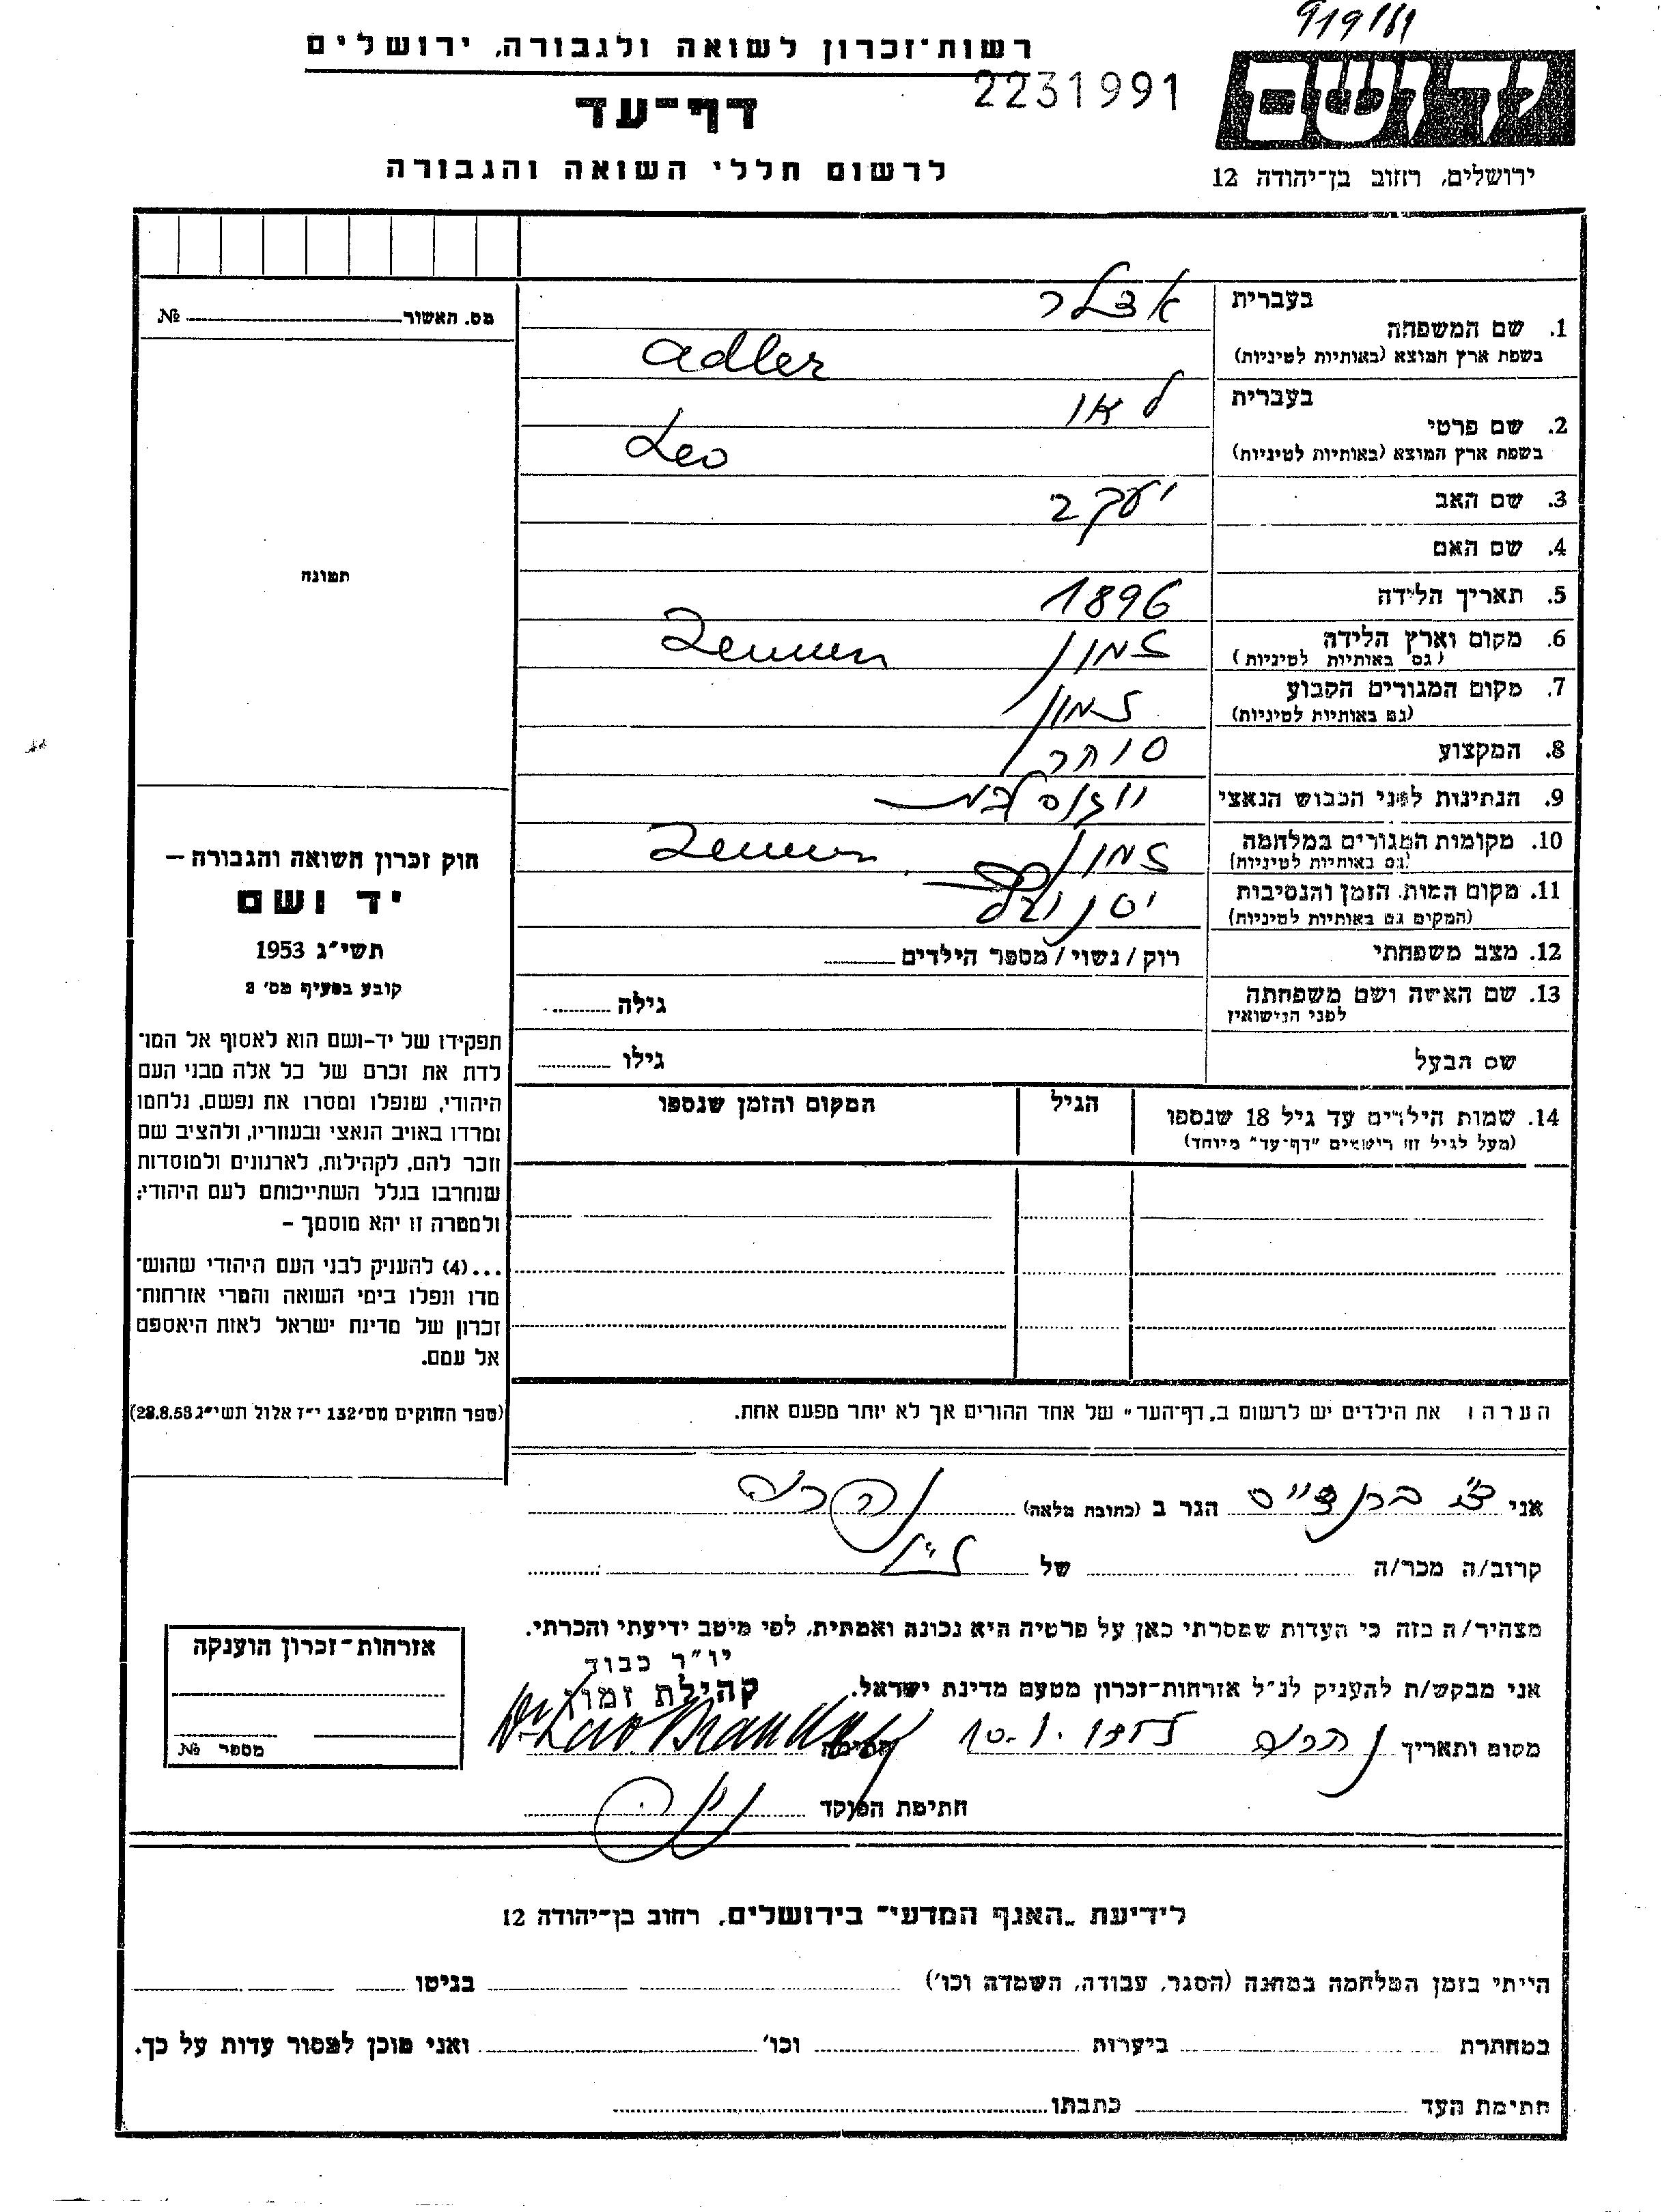 רשות־זכרון לשואה ולגבורה, ירושלים
2231991
יד ושם
דף־עד
לרשום חללי השואה והגבורה
ירושלים, רחוב בן־יהודה 12
מס. האשור № 
בעברית
אדלר
1. שם המשפחה
בשפת ארץ המוצא (באותיות לטיניות)
adler
בעברית
לאו
2. שם פרטי
בשפת ארץ המוצא (באותיות לטיניות)
Leo
3. שם האב
יעקב
4. שם האם
5. תאריך הלידה
1896
6. מקום וארץ הלידה
(גם באותיות לטיניות)
זמון Zemun
7. מקום המגורים הקבוע
(גם באותיות לטיניות)
זמון
8. המקצוע
סוחר
9. הנתינות לפני הכבוש הנאצי
יוגוסלבית
10. מקומות המגורים במלחמה
(גם באותיות לטיניות)
זמון Zemun
11. מקום המות, הזמן והנסיבות
(המקום גם באותיות לטיניות)
12. מצב משפחתי
רוק / נשוי / מספר הילדים
13. שם האישה ושם משפחתה
לפני הנישואין
גילה
שם הבעל
גילו
14. שמות הילדים עד גיל 18 שנספו
(מעל לגיל זה רושמים "דף־עד" מיוחד)
הגיל
המקום והזמן שנספו
הערה: את הילדים יש לרשום ב„דף־העד" של אחד ההורים אך לא יותר מפעם אחת.
תמונה
חוק זכרון השואה והגבורה –
יד ושם
תשי״ג 1953
קובע בסעיף מס׳ 2
תפקידו של יד־ושם הוא לאסוף אל המו־
לדת את זכרם של כל אלה מבני העם
היהודי, שנפלו ומסרו את נפשם, נלחמו
ומרדו באויב הנאצי ובעוזריו, ולהציב שם
וזכר להם, לקהילות, לארגונים ולמוסדות
שנחרבו בגלל השתייכותם לעם היהודי;
ולמטרה זו יהא מוסמך –
...(4) להעניק לבני העם היהודי שהוש־
מדו ונפלו בימי השואה והמרי אזרחות־
זכרון של מדינת ישראל לאות היאספם
אל עמם.
(ספר החוקים מס׳ 132 י״ז אלול תשי״ג 28.8.53)
אני ברנדייס הגר ב (כתובת מלאה) נהריה
קרוב/ה מכר/ה של
מצהיר/ה בזה כי העדות שמסרתי כאן על פרטיה היא נכונה ואמתית, לפי מיטב ידיעתי והכרתי.
יו״ר כבוד
קהילת זמון
אני מבקש/ת להעניק לנ״ל אזרחות־זכרון מטעם מדינת ישראל.
מקום ותאריך נהריה 10.1. חתימה Dr Lav
חתימת הפוקד
אזרחות־זכרון הוענקה
מספר №
לידיעת „האגף המדעי" בירושלים, רחוב בן־יהודה 12
הייתי בזמן המלחמה במחנה (הסגר, עבודה, השמדה וכו׳) בגיטו
במחתרת ביערות וכו׳ ואני מוכן למסור עדות על כך.
חתימת העד כתבתו